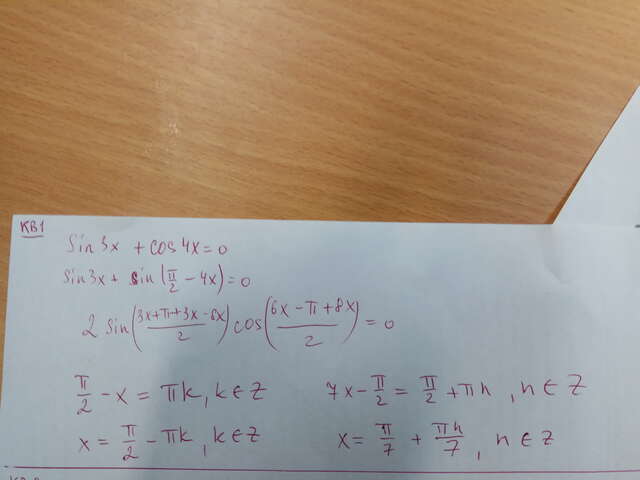 КВ1
sin3x + cos4x = 0
sin3x + sin(π/2 - 4x) = 0
2 sin((3x+π+3x-8x)/2) cos((6x-π+8x)/2) = 0
π/2 - x = πk, k∈Z 7x - π/2 = π/2 + πn, n∈Z
x = π/2 - πk, k∈Z x = π/7 + πn/7, n∈Z